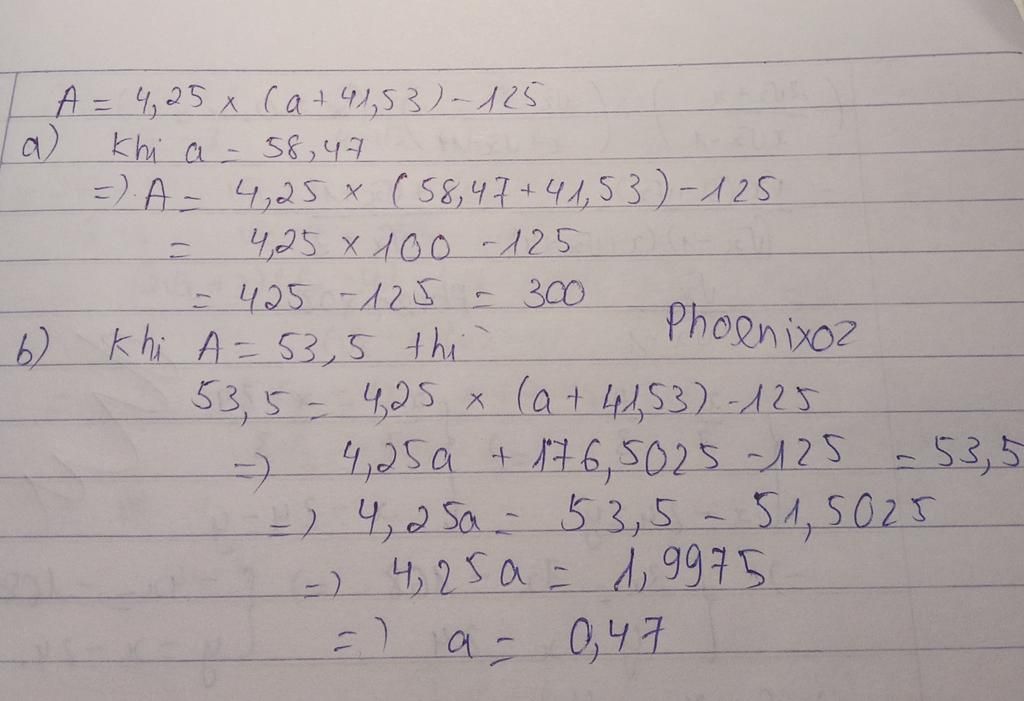 A = 4,25 x (a + 41,53) - 125
a) Khi a = 58,47
=) A = 4,25 x (58,47 + 41,53) - 125
= 4,25 x 100 - 125
= 425 - 125 = 300
Phoenixoz
b) Khi A = 53,5 thì
53,5 = 4,25 x (a + 41,53) - 125
=) 4,25a + 176,5025 - 125 = 53,5
=) 4,25a = 53,5 - 51,5025
=) 4,25a = 1,9975
=) a = 0,47